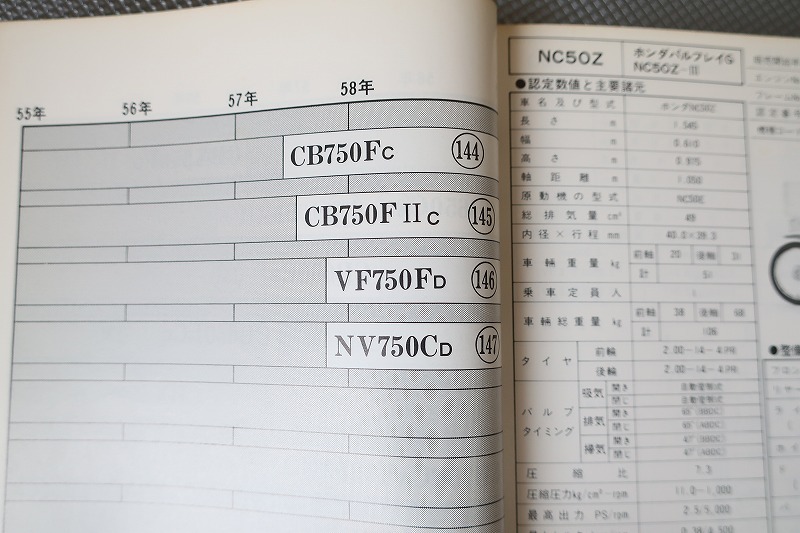 55年 56年 57年 58年
CB750Fc 144
CB750FⅡc 145
VF750FD 146
NV750CD 147
NC50Z
ホンダパルフレイG
NC50Z-Ⅲ
●認定数値と主要諸元
車名及び型式 ホンダNC50Z
長さ m 1.545
幅 m 0.610
高さ m 0.975
軸距離 m 1.050
原動機の型式 NC50E
総排気量 cm³ 49
内径×行程 mm 40.0×39.3
車輛重量 kg 前軸 20 後軸 31
計 51
乗車定員 人 1
車輛総重量 kg 前軸 38 後軸 68
計 106
タイヤ 前輪 2.00-14-4PR
後輪 2.00-14-4PR
バルブタイミング 吸気 開き 自動変動式
閉じ 自動変動式
排気 開き
閉じ
掃気 開き
閉じ
圧縮比 7.3
圧縮圧力kg/cm²-rpm 11.0-1,000
最高出力 PS/rpm 2.5/5,000
0.38/4,500
●整備